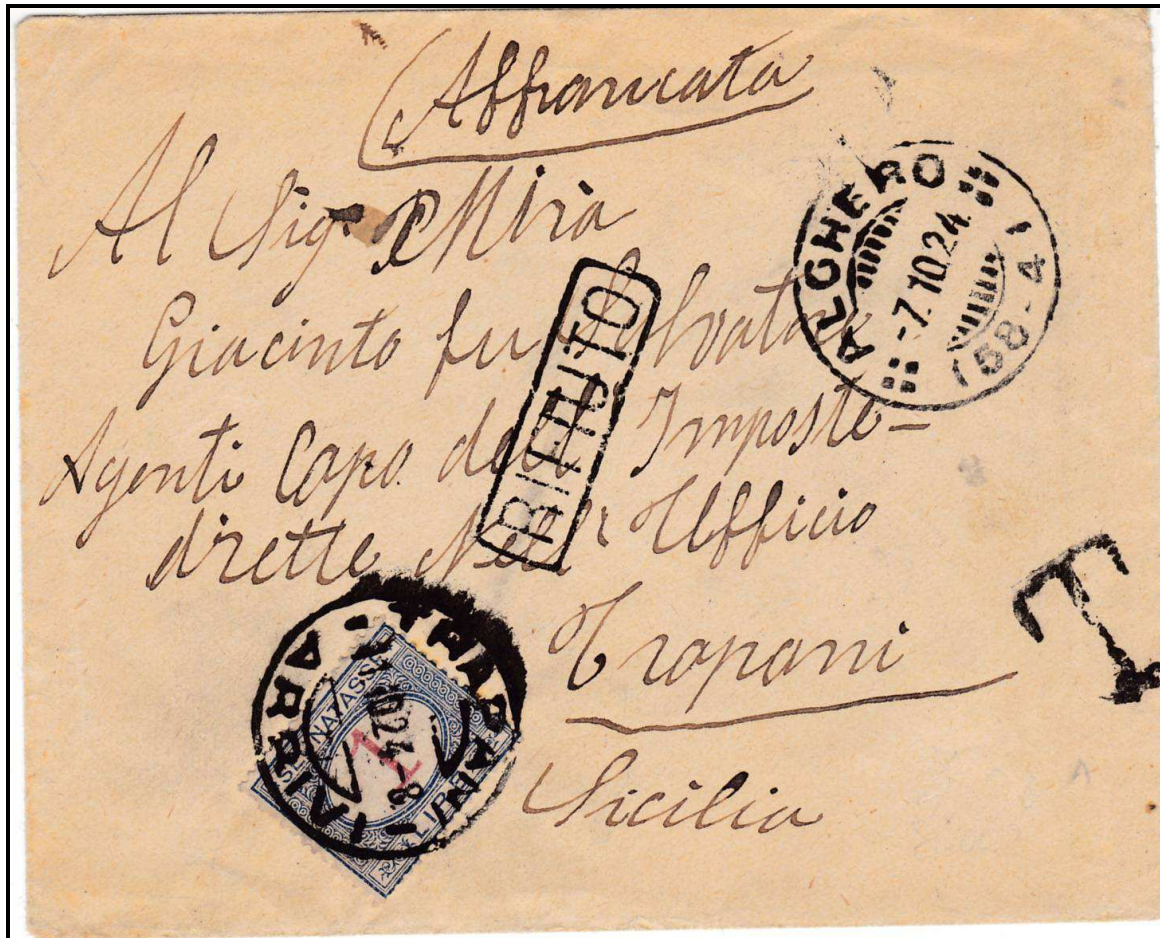 Affrancata
Al Sig. Mirà
Giacinto fu Salvatore
Agenti Capo delle Imposte-
dirette Nell' Ufficio
Trapani
Sicilia
RIFIUTO
ALGHERO
-7.10.24
(58-4)
T
TRAPANI
24-8
SEGNATASSE
1
LIRE